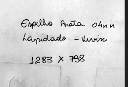 Espelho Prata 04mm
Lapidado -
1283 X 798